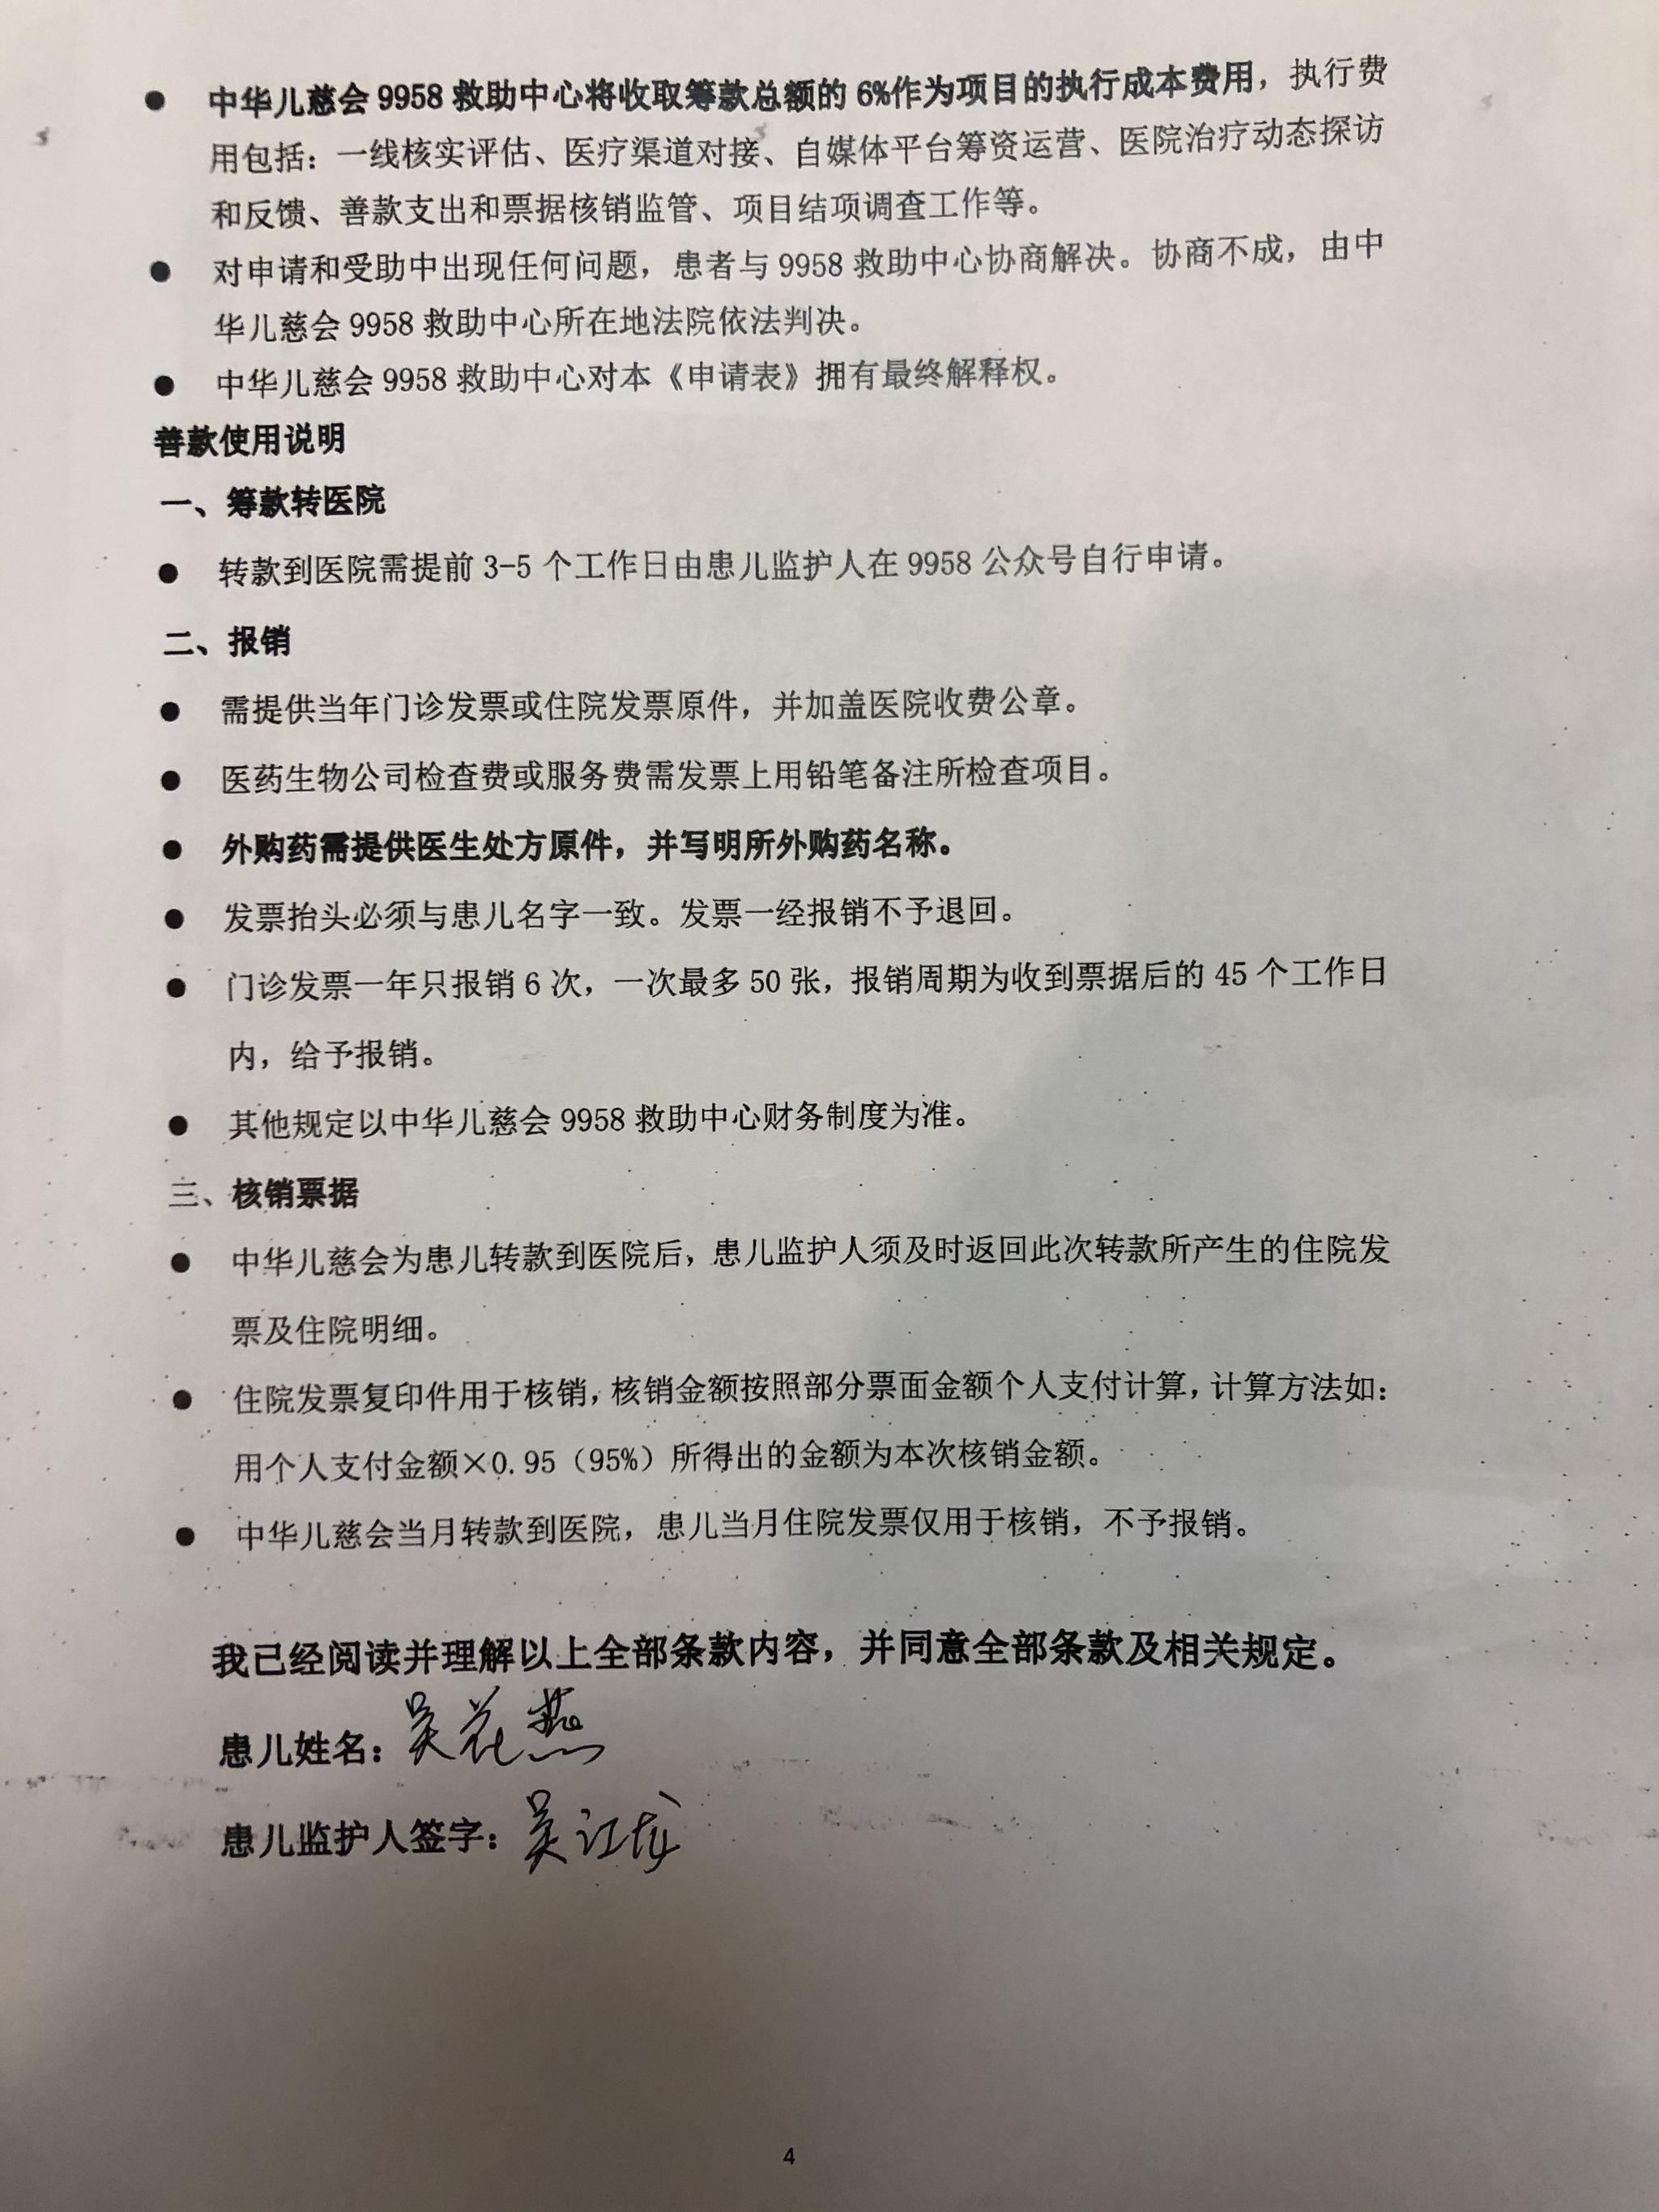 ● 中华儿慈会9958救助中心将收取筹款总额的6%作为项目的执行成本费用，执行费
用包括：一线核实评估、医疗渠道对接、自媒体平台筹资运营、医院治疗动态探访
和反馈、善款支出和票据核销监管、项目结项调查工作等。
● 对申请和受助中出现任何问题，患者与9958救助中心协商解决。协商不成，由中
华儿慈会9958救助中心所在地法院依法判决。
● 中华儿慈会9958救助中心对本《申请表》拥有最终解释权。
善款使用说明
一、筹款转医院
● 转款到医院需提前3-5个工作日由患儿监护人在9958公众号自行申请。
二、报销
● 需提供当年门诊发票或住院发票原件，并加盖医院收费公章。
● 医药生物公司检查费或服务费需发票上用铅笔备注所检查项目。
● 外购药需提供医生处方原件，并写明所外购药名称。
● 发票抬头必须与患儿名字一致。发票一经报销不予退回。
● 门诊发票一年只报销6次，一次最多50张，报销周期为收到票据后的45个工作日
内，给予报销。
● 其他规定以中华儿慈会9958救助中心财务制度为准。
三、核销票据
● 中华儿慈会为患儿转款到医院后，患儿监护人须及时返回此次转款所产生的住院发
票及住院明细。
● 住院发票复印件用于核销，核销金额按照部分票面金额个人支付计算，计算方法如：
用个人支付金额×0.95（95%）所得出的金额为本次核销金额。
● 中华儿慈会当月转款到医院，患儿当月住院发票仅用于核销，不予报销。
我已经阅读并理解以上全部条款内容，并同意全部条款及相关规定。
患儿姓名：吴花燕
患儿监护人签字：吴江龙
4